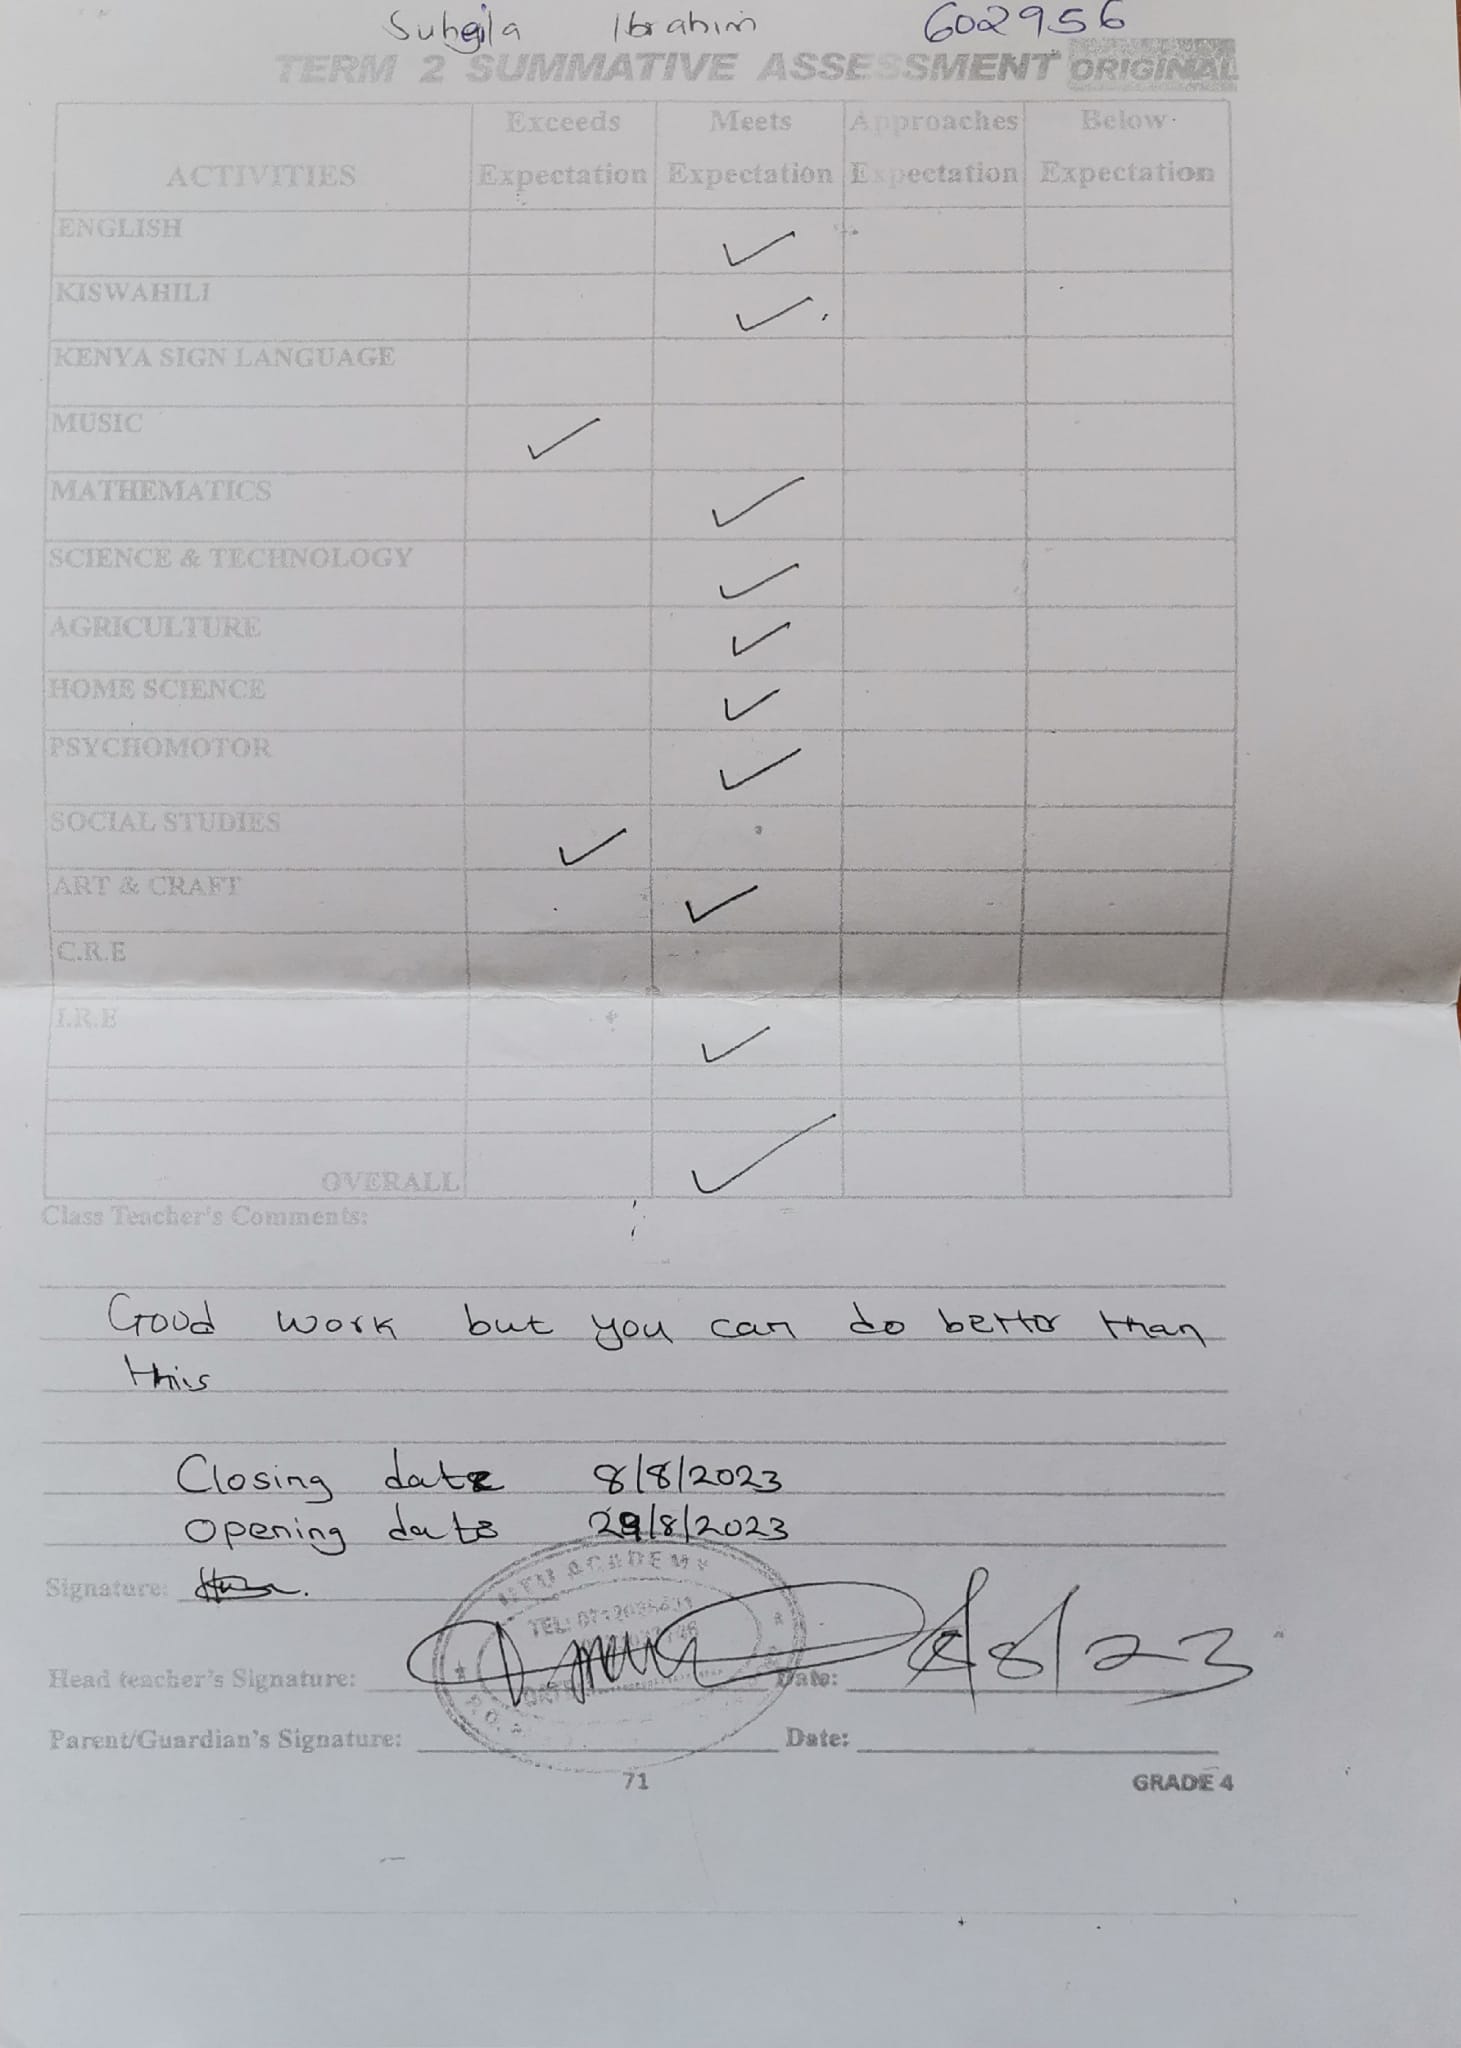 Suhaila Ibrahim 602956
TERM 2 SUMMATIVE ASSESSMENT ORIGINAL
ACTIVITIES Exceeds Expectation Meets Expectation Approaches Expectation Below Expectation
ENGLISH ✓
KISWAHILI ✓
KENYA SIGN LANGUAGE
MUSIC ✓
MATHEMATICS ✓
SCIENCE & TECHNOLOGY ✓
AGRICULTURE ✓
HOME SCIENCE ✓
PSYCHOMOTOR ✓
SOCIAL STUDIES ✓
ART & CRAFT ✓
C.R.E
I.R.E ✓
OVERALL ✓
Class Teacher's Comments:
Good work but you can do better than
this
Closing date 8/8/2023
Opening date 29/8/2023
Signature:
ACADEMY
TEL:
Head teacher's Signature: Date: 8/8/23
Parent/Guardian's Signature: Date:
71 GRADE 4